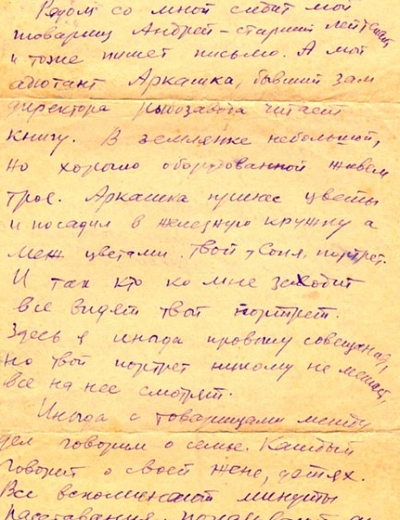 Рядом со мной сидит мой
товарищ Андрей – старший лейтенант
и тоже пишет письмо. А мой
адютант Аркашка, бывший зам
директора рыбозавода читает
книгу. В землянке небольшой,
но хорошо оборудованной живем
трое. Аркашка принес цветы
и посадил в железную кружку а
меж цветами твой, Соня, портрет.
И так кто ко мне заходит
все видят твой портрет.
Здесь я иногда провожу совещания,
но твой портрет никому не мешает,
все на нее смотрят.
Иногда с товарищами между
дел говорим о семье. Каждый
говорит о своей жене, детях.
Все вспоминают минуты
расставания,